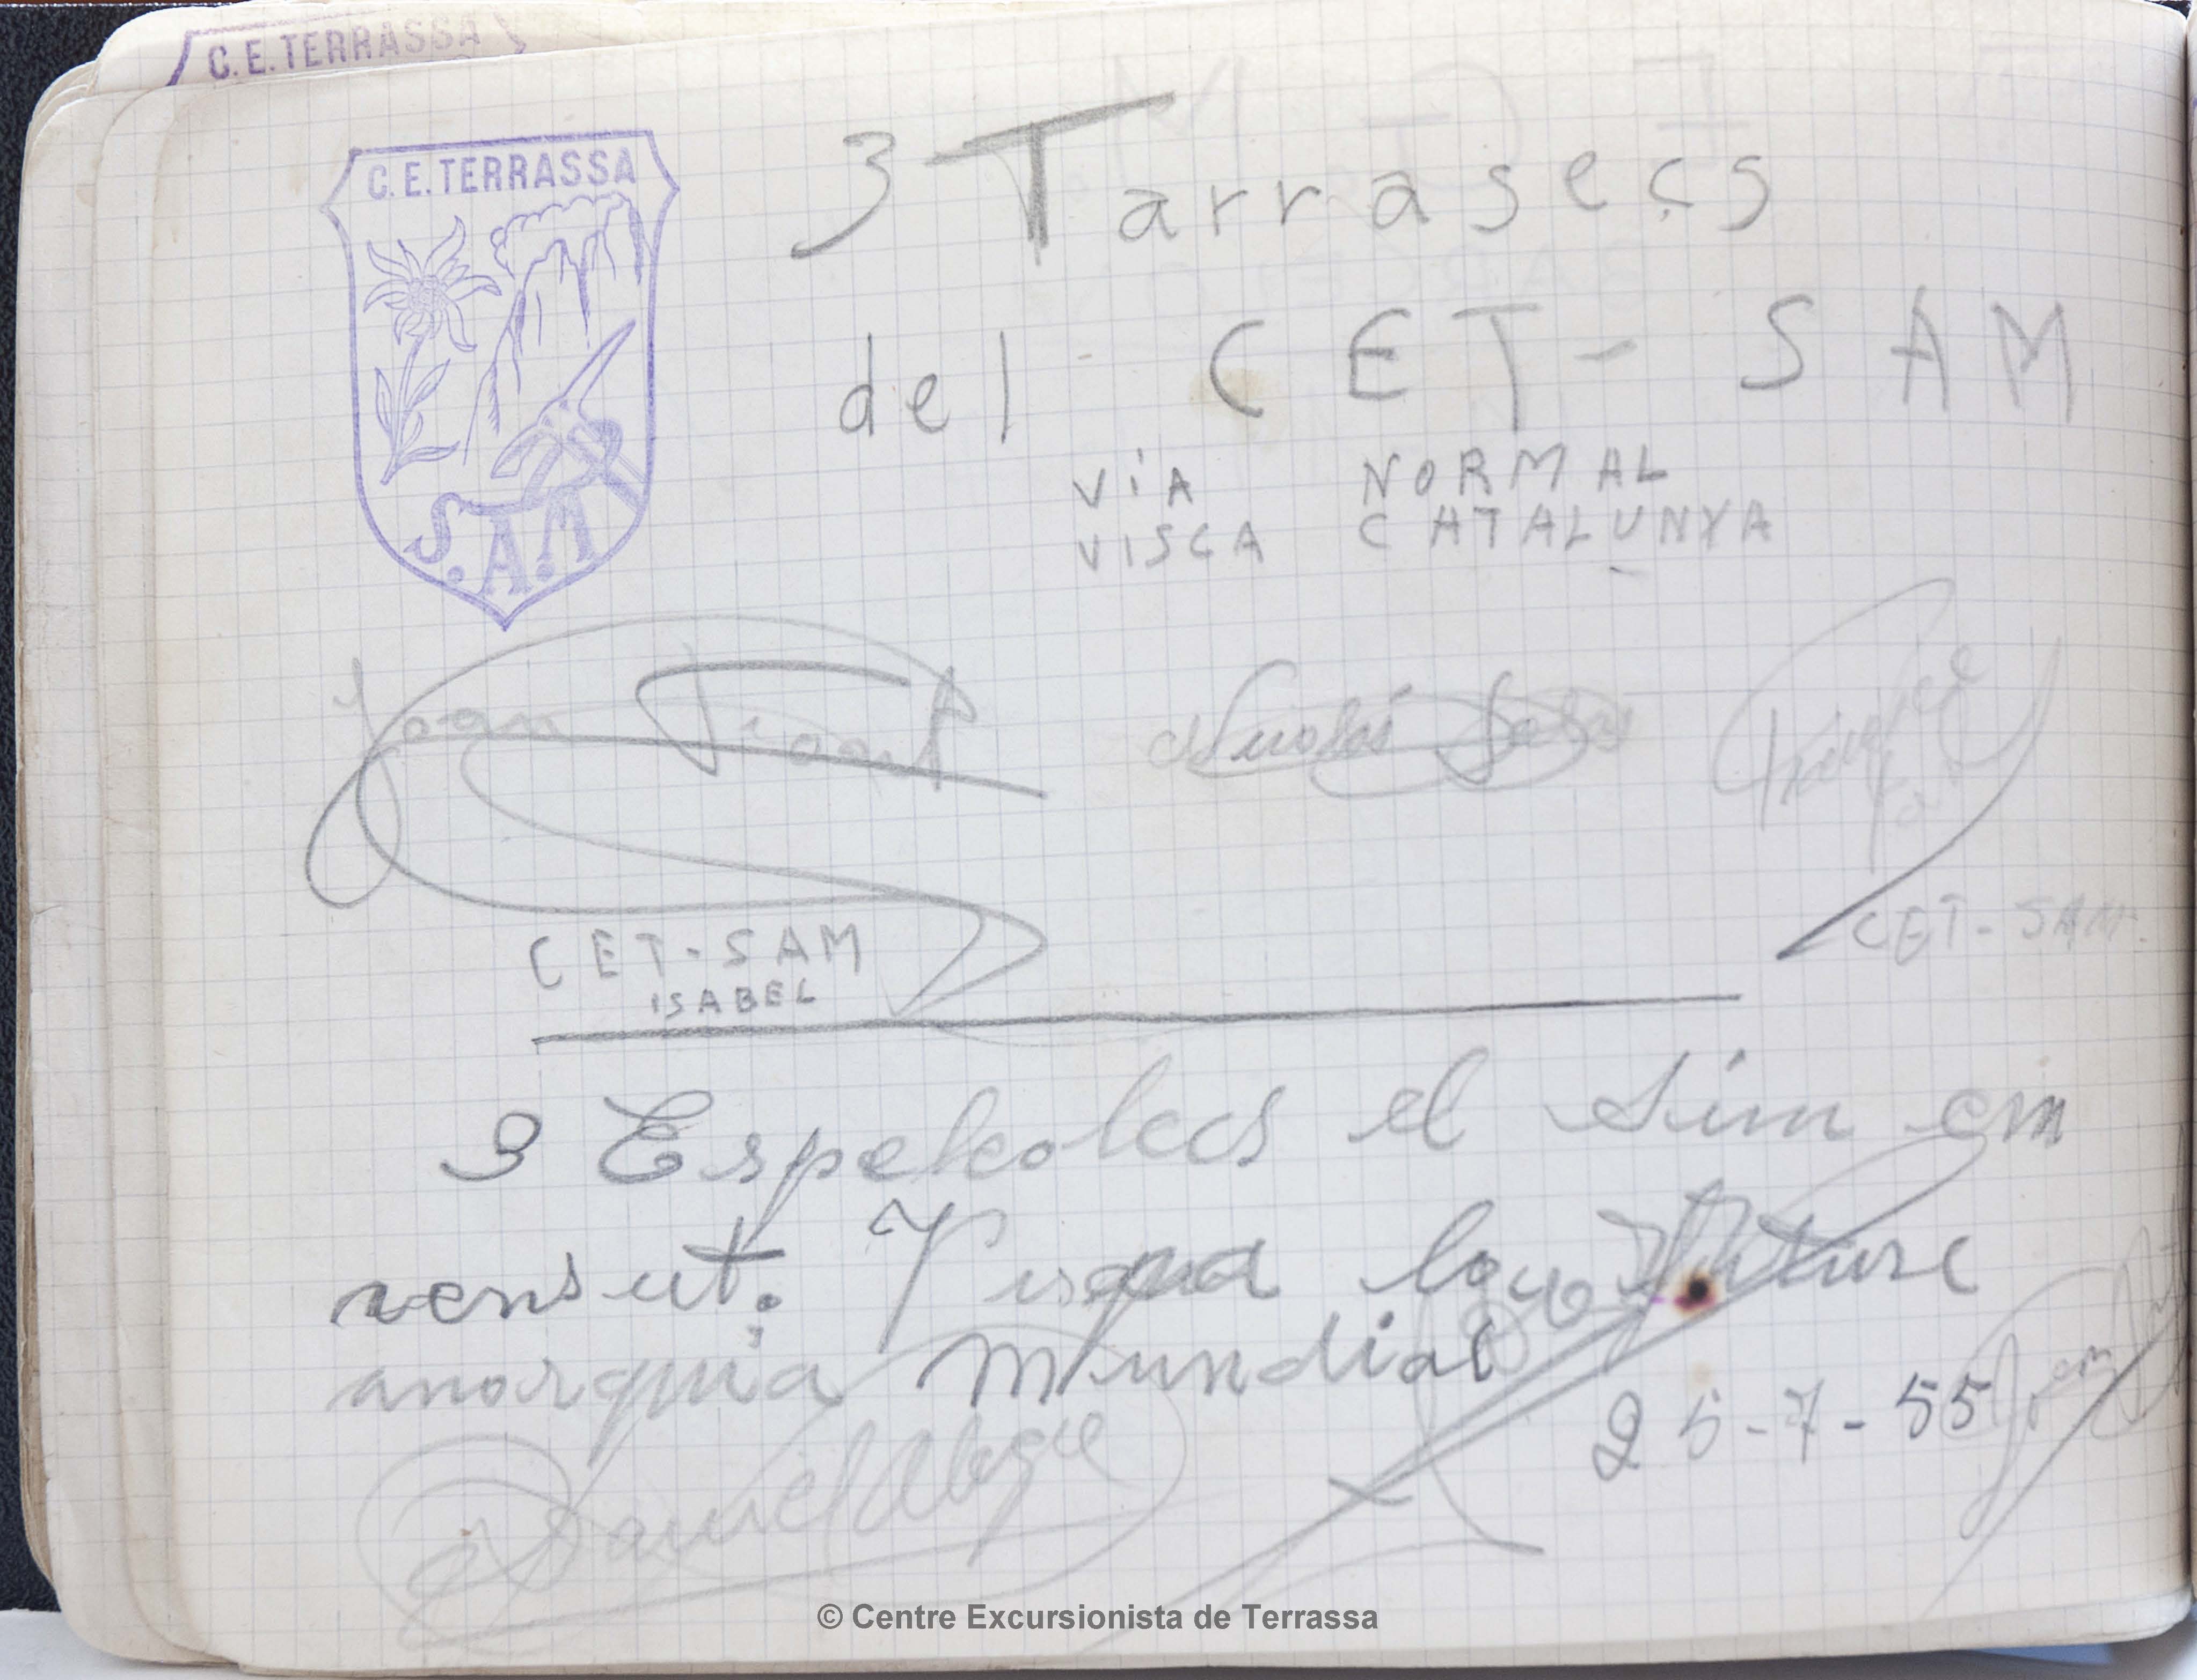 C.E. TERRASSA
C.E. TERRASSA
S.A.M
3 Tarrasecs
del CET - SAM
VIA NORMAL
VISCA CATALUNYA
Joan
Nicolás
CET-SAM
CET-SAM
ISABEL
3 Espeleolecs el sim em
vensut. Visqua la future
anarquia mundial
25-7-55
Daniel
© Centre Excursionista de Terrassa